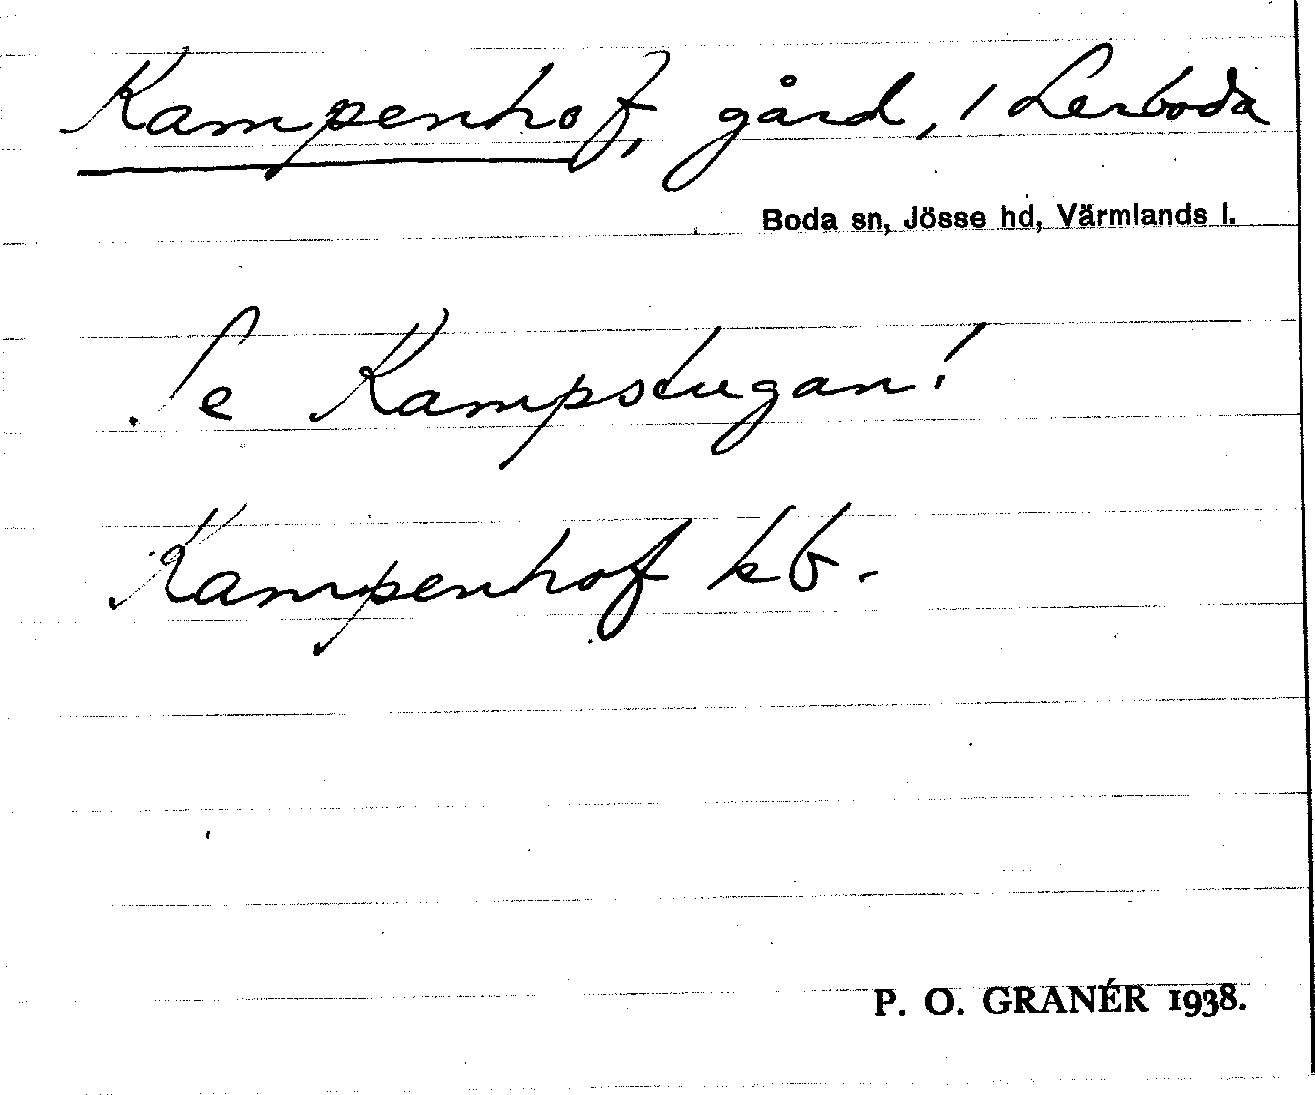 Kampenhof, gård, 1 Lerboda
Boda sn, Jösse hd, Värmlands l.
Se Kampstugan!
Kampenhof kb.
P. O. GRANÉR 1938.